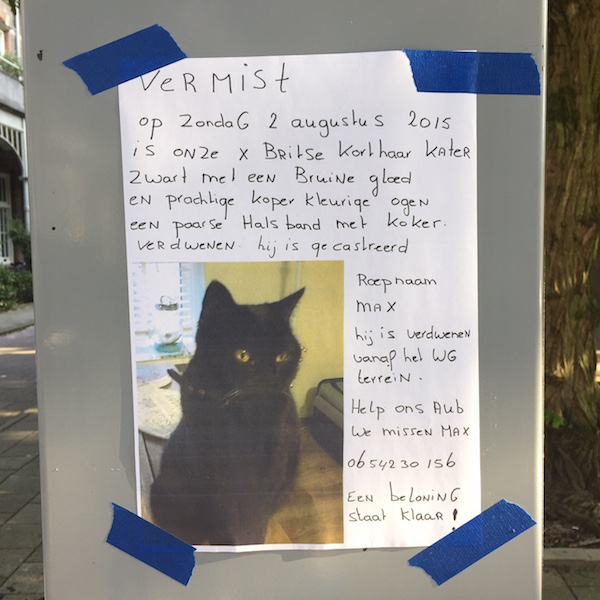 VERMISt
op zondaG 2 augustus 2015
is onze x BRitse Korthaar KAteR
zwart met een Bruine gloed
en prachtige koper kleurige ogen
een paarse Halsband met Koker.
verdwenen. hij is gecastreerd
Roepnaam
MAX
hij is verdwenen
vanaf het WG
terrein.
Help ons Aub
We missen MAX
06 54230 156
Een beloninG
staat klaar!